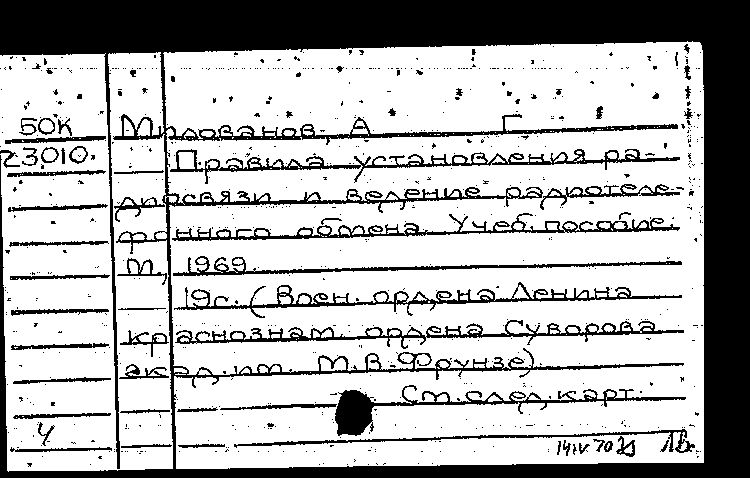 50К Милованов, А Г.
23010. Правила установления ра-
диосвязи и ведение радиотеле-
фонного обмена. Учеб. пособие.
М., 1969.
19с. (Воен. ордена Ленина
краснознам. ордена Суворова
акад. им. М.В. Фрунзе)
См. след. карт.
14 IV 70